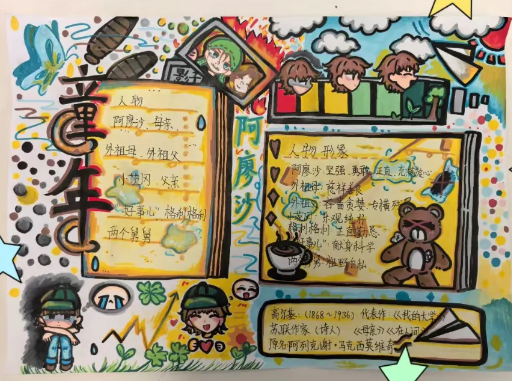 童年
影
阿廖沙
人物
阿廖沙、母亲
外祖母、外祖父
小茨冈、父亲
"好事儿" 格利戈利
两个舅舅
人物 形象
阿廖沙 坚强 勇敢 正直
外祖母 慈祥善良
外祖父
小茨冈 乐观纯朴
格利格利 正直
"好事儿" 献身科学
两个舅舅 粗野自私
高尔基 (1868~1936) 代表作《我的大学》
苏联作家(诗人) 《母亲》《在人间》
原名阿列克谢·马克西莫维奇